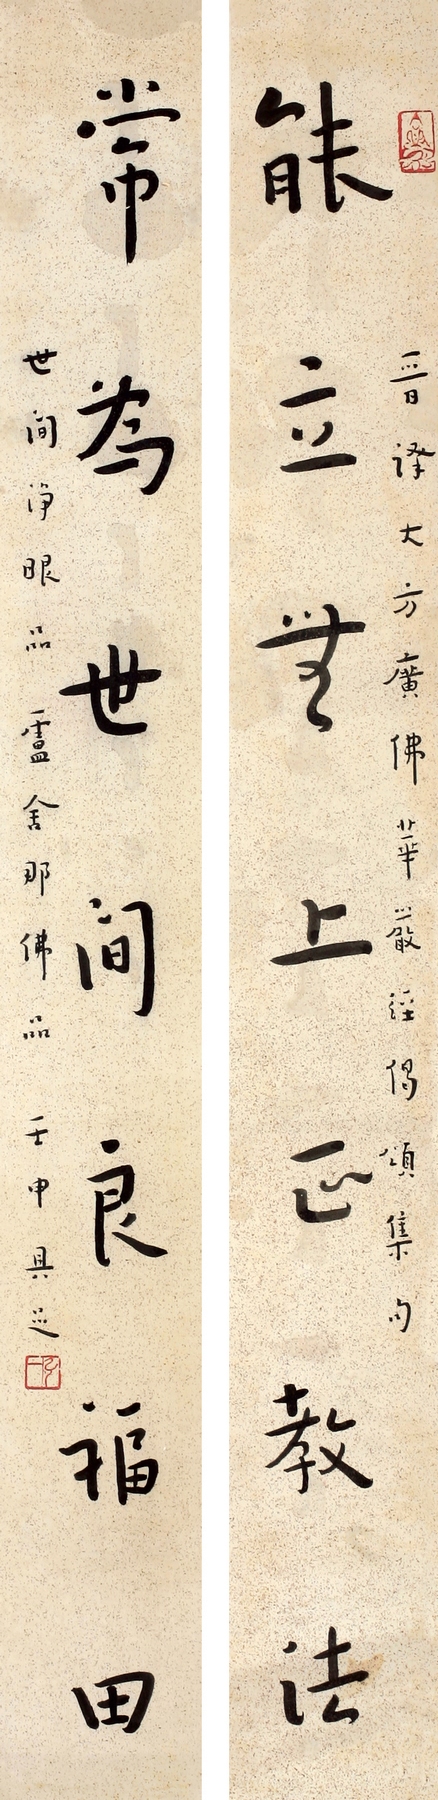 晉譯大方廣佛華嚴經偈頌集句
能立無上正教法
常為世間良福田
世間淨眼品盧舍那佛品 壬申具足
弘一